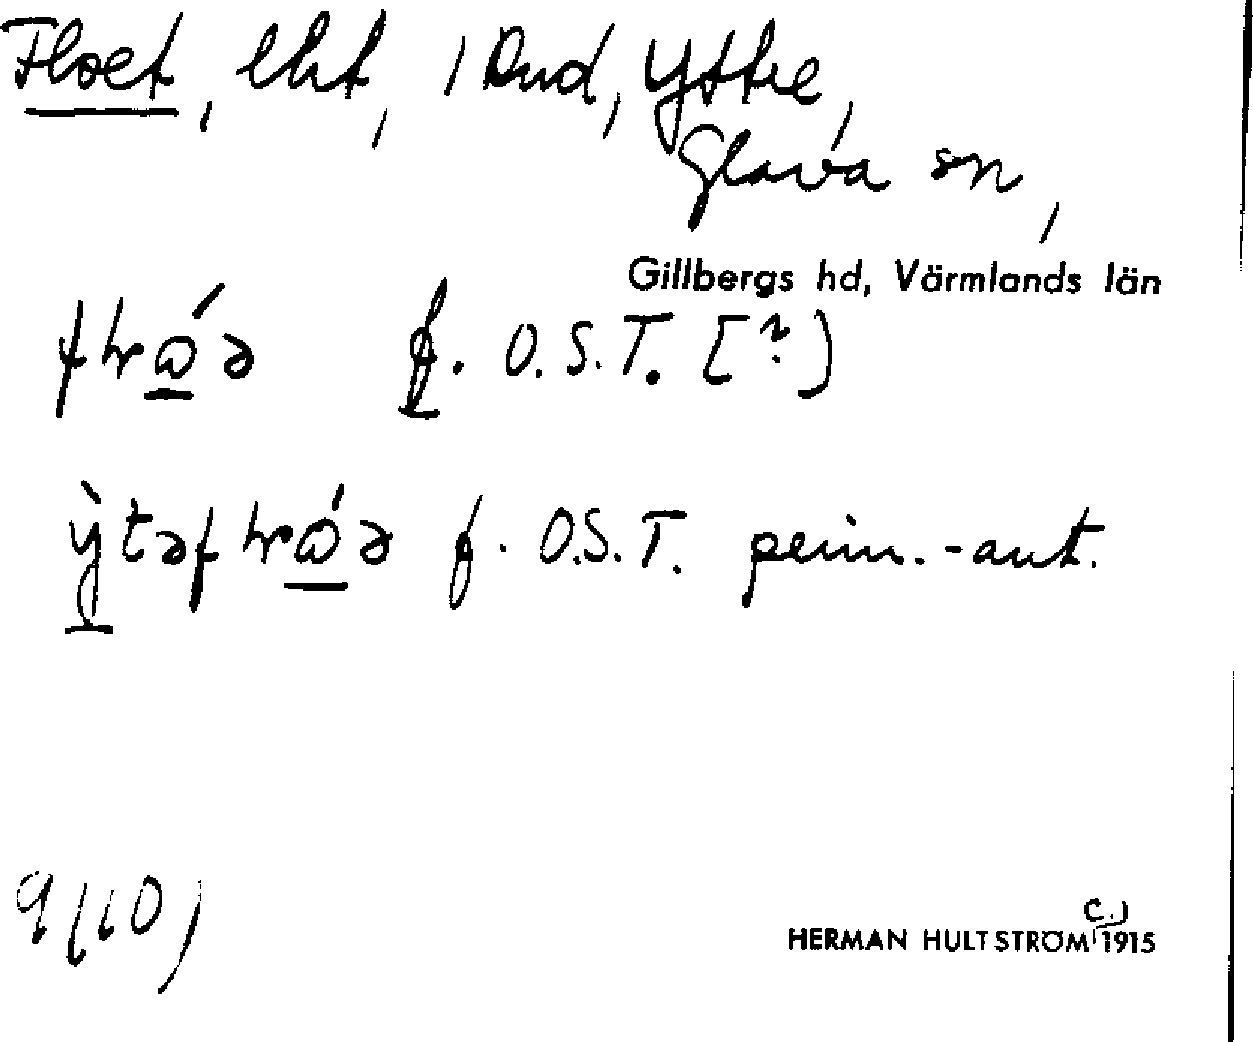 Floet, lht, i Dud, Yttre,
Glava sn,
Gillbergs hd, Värmlands län
f. O.S.T. [?)
f. O.S.T. perm.-ant.
9(10)
HERMAN HULTSTRÖM c.) 1915